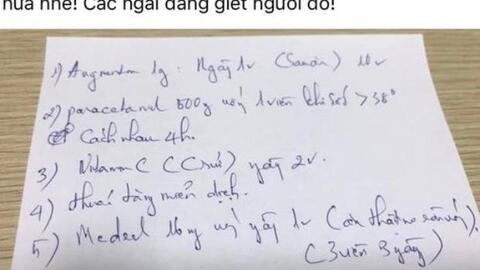 nữa nhé! Các ngài đang giết người đó!
1) Augmentin 1g : Ngày 1v (Sandoz) 10v
2) paracetamol 500g uống 1 viên khi sốt > 38°
Cách nhau 4h.
3) Vitamin C (C sủi) ngày 2v.
4) thuốc tăng miễn dịch.
5) Medrol 16mg uống ngày 1v
(3 viên 3 ngày)